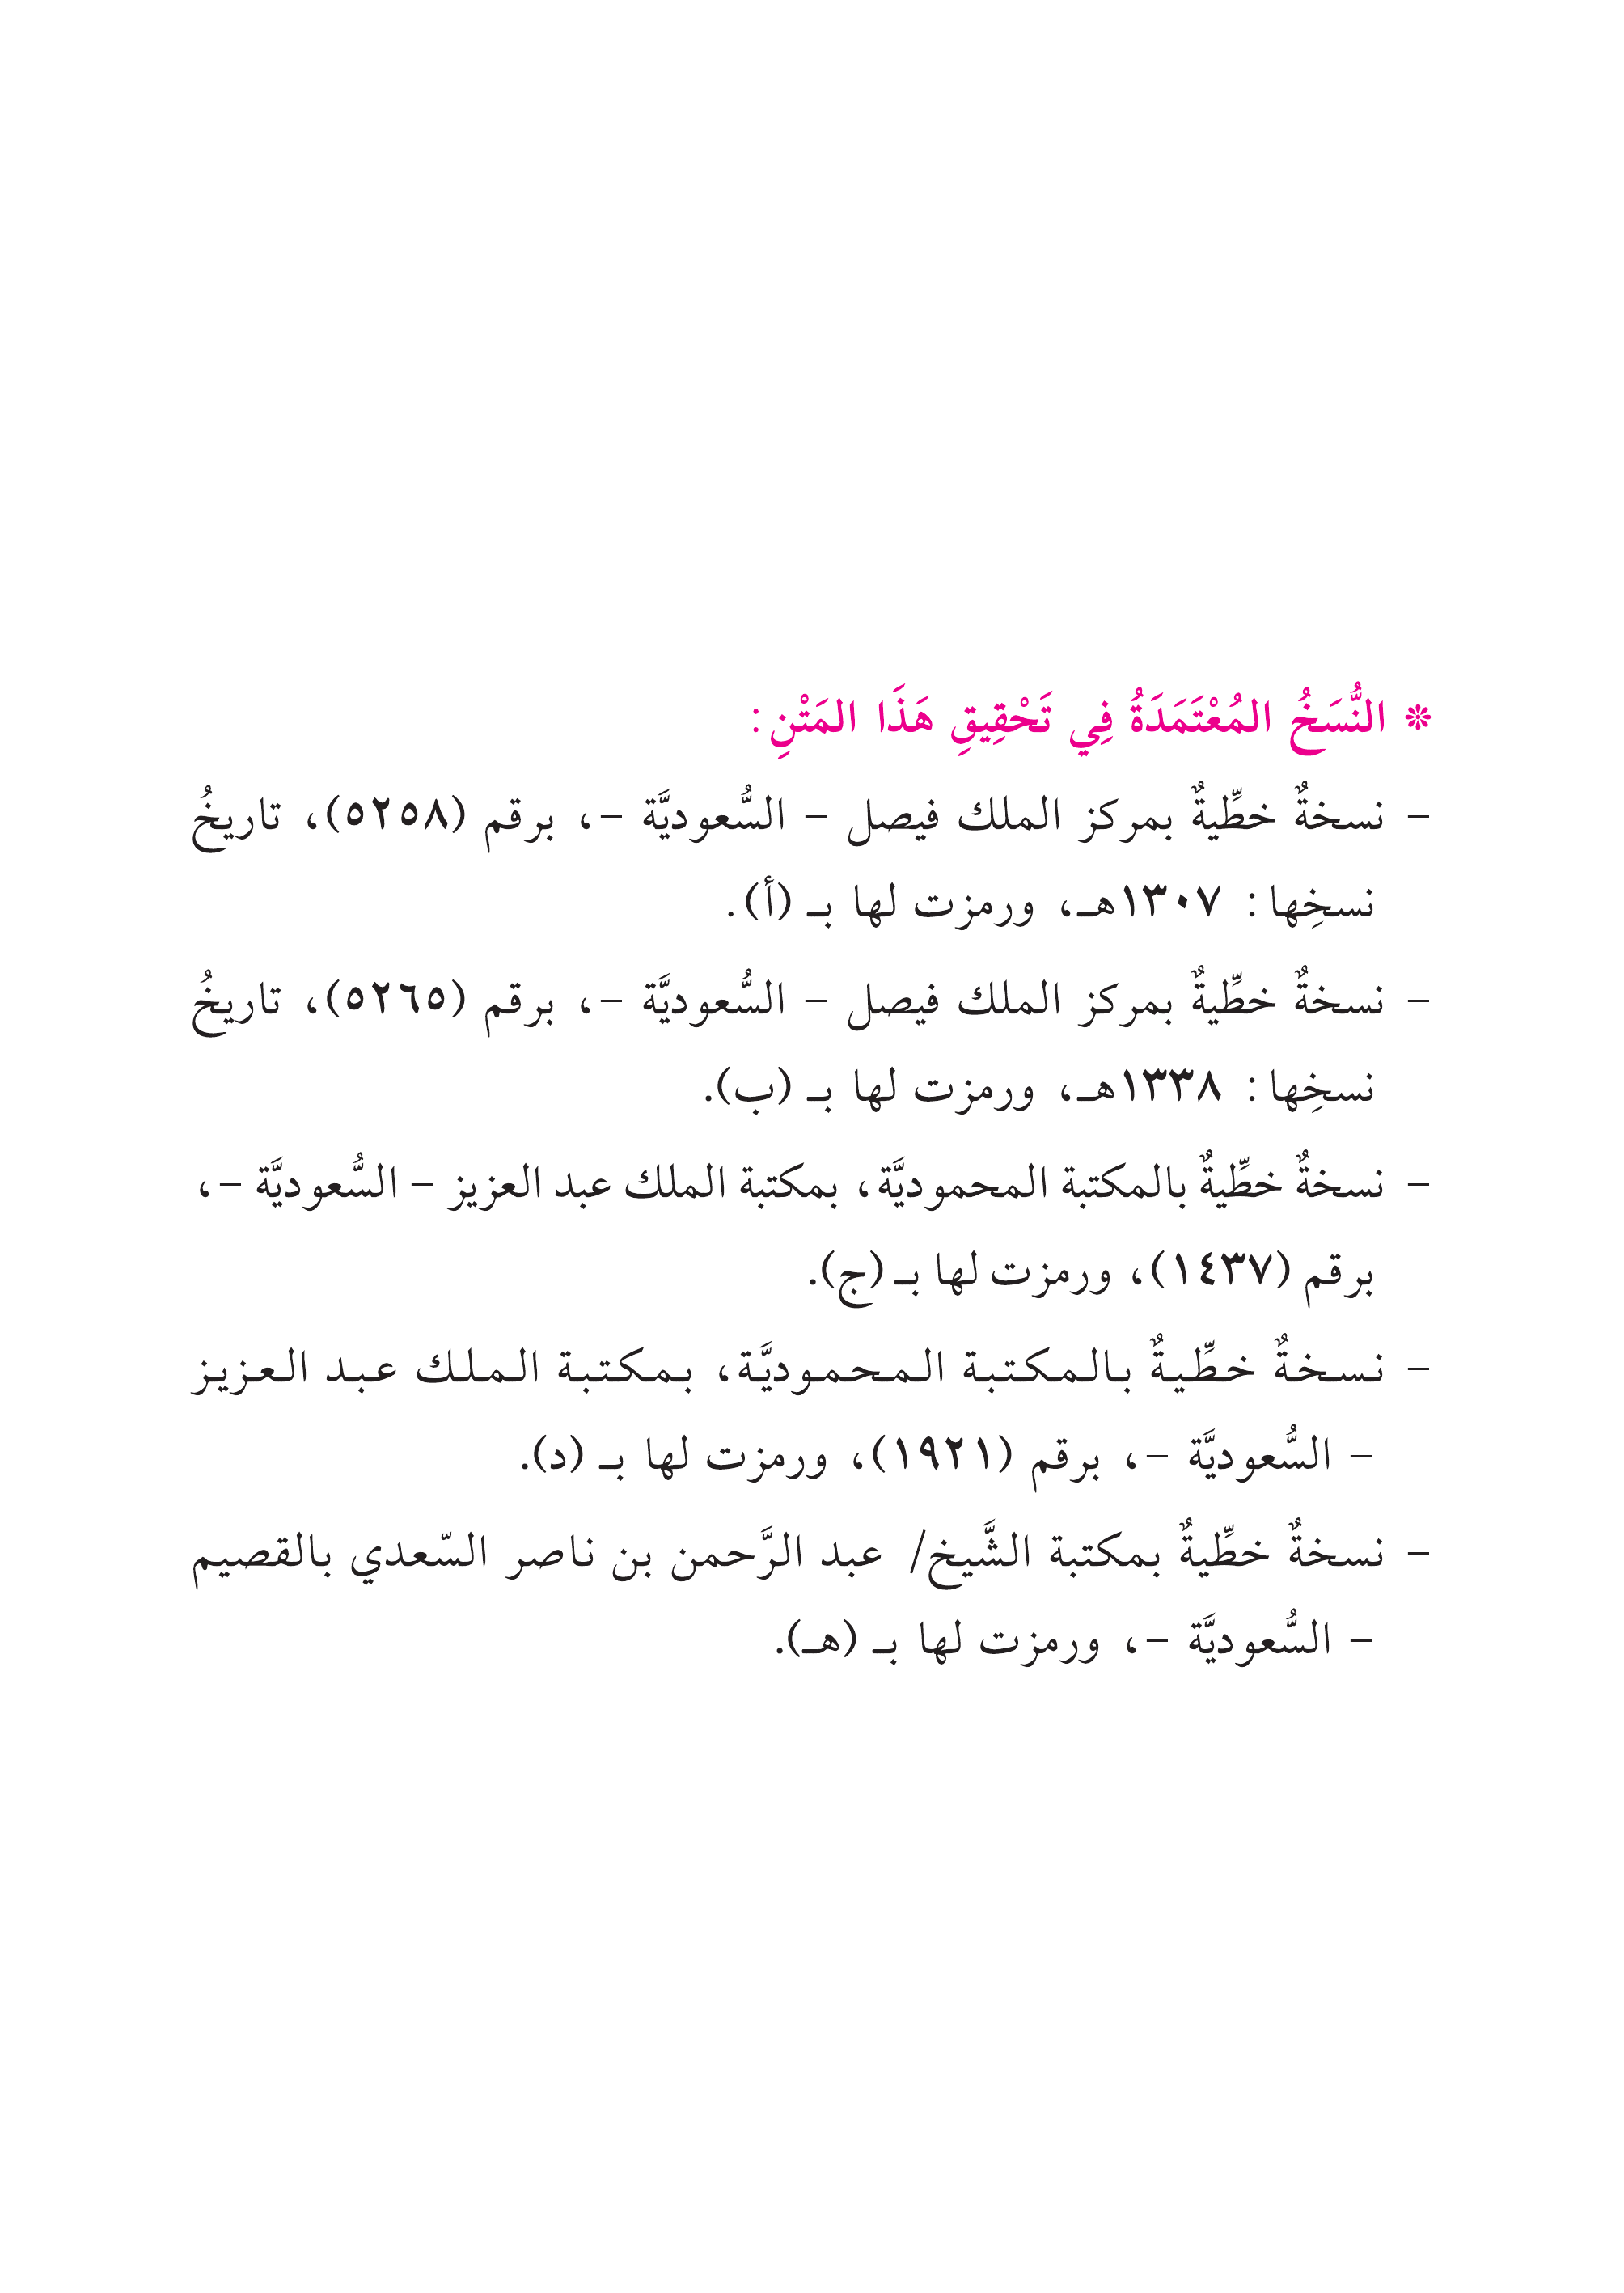 * النُّسَخُ المُعْتَمَدَةُ فِي تَحْقِيقِ هَذَا المَتْنِ:
- نسخةٌ خطِّيةٌ بمركز الملك فيصل - السُّعوديَّة -، برقم (٥٢٥٨)، تاريخُ
نسخِها: ١٣٠٧هـ، ورمزت لها بـ (أ).
- نسخةٌ خطِّيةٌ بمركز الملك فيصل - السُّعوديَّة -، برقم (٥٢٦٥)، تاريخُ
نسخِها: ١٣٣٨هـ، ورمزت لها بـ (ب).
- نسخةٌ خطِّيةٌ بالمكتبة المحموديَّة، بمكتبة الملك عبد العزيز - السُّعوديَّة -،
برقم (١٤٣٧)، ورمزت لها بـ (ج).
- نسخةٌ خطِّيةٌ بالمكتبة المحموديَّة، بمكتبة الملك عبد العزيز
- السُّعوديَّة -، برقم (١٩٢١)، ورمزت لها بـ (د).
- نسخةٌ خطِّيةٌ بمكتبة الشَّيخ/ عبد الرَّحمن بن ناصر السّعدي بالقصيم
- السُّعوديَّة -، ورمزت لها بـ (هـ).